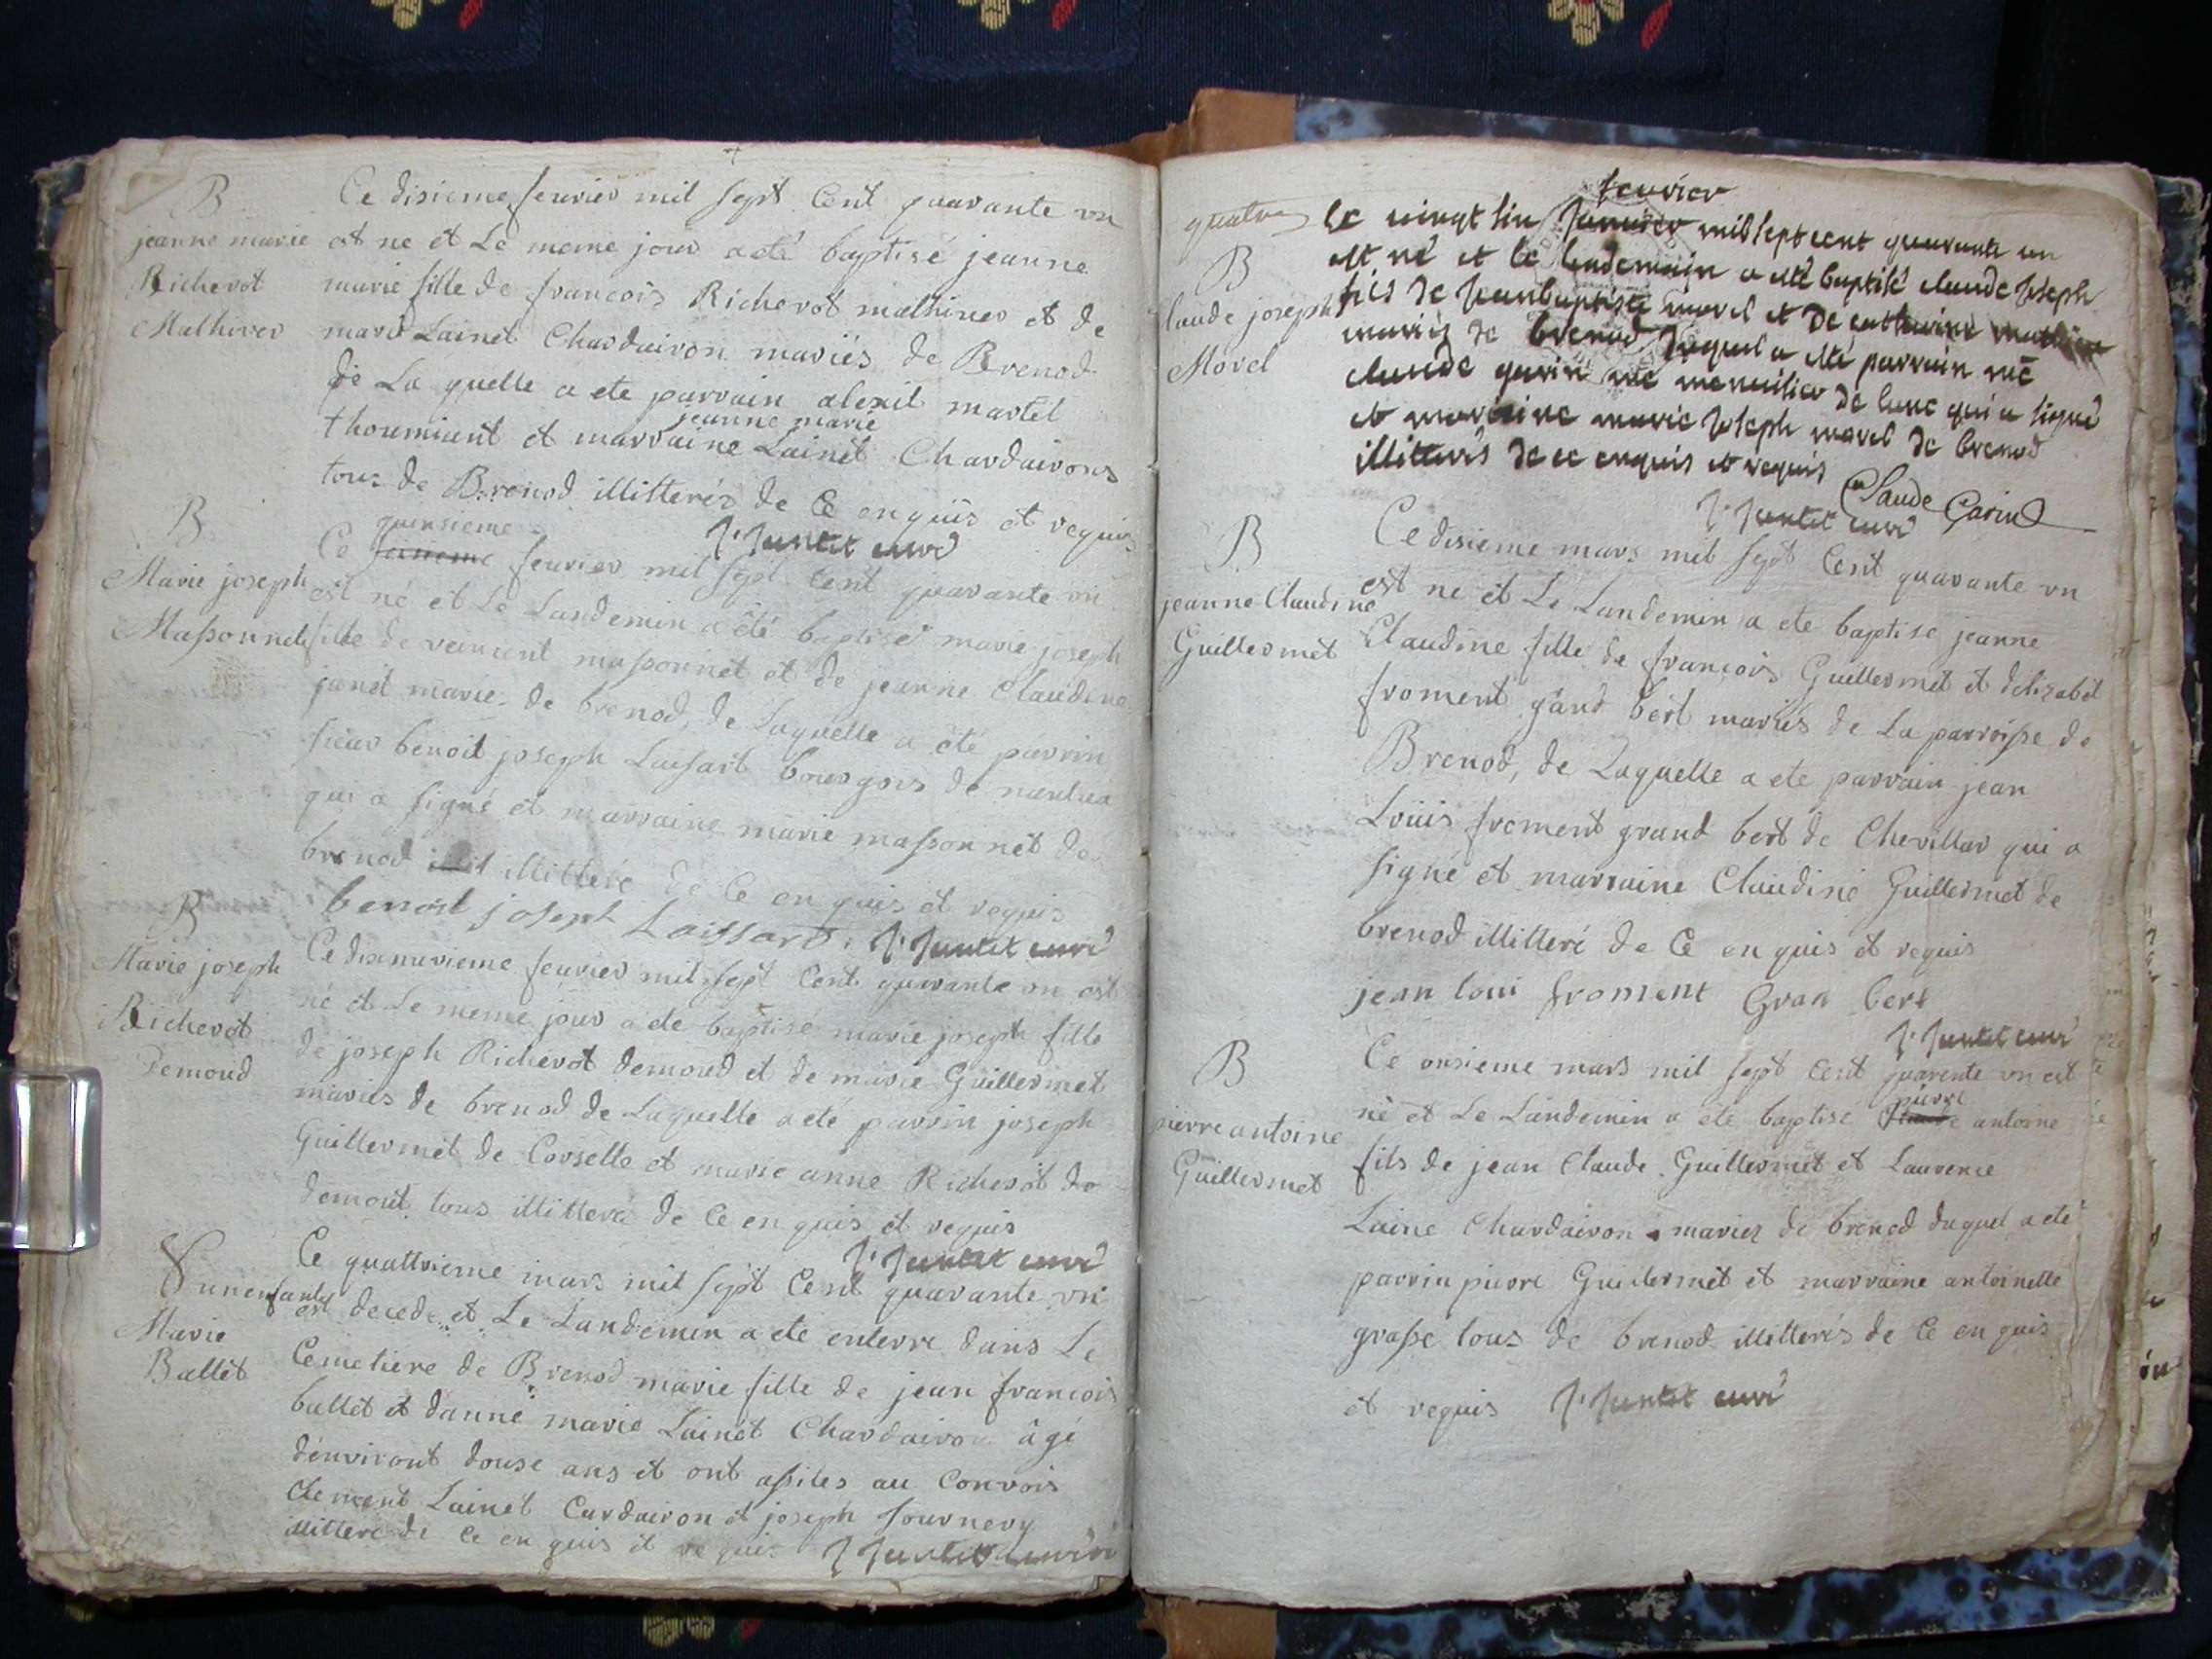 B
jeanne marie
Richerot
Mathiver
Ce disieme feurier mil sept Cent quarante un
est ne et Le meme jour a eté baptisé jeanne
marie fille de francois Richerot mathiver et de
marie Lainet Chardairon mariés de Brenod
de La quelle a ete parrain alexil martel
jeanne marie
thoumiant et marraine Lainet Chardairons
tous de Brenod illitterés de Ce enquis et requis
curé
B
Marie joseph
Massonnet
quinsieme
Ce feurier mil sept Cent quarante un
est né et Le Landemin a été baptisé marie joseph
fille de vencent massonnet et de jeanne Claudine
janet marie de brenod, de Laquelle a été parrin
sieur benoit joseph Laissart bourgois de nantua
qui a signé et marraine marie massonnet de
brenod illitteré de Ce en quis et requis
benoist joseph Laissard. curé
B
Marie joseph
Richerot
Demoud
Ce disenuvieme feurier mil sept Cent quarante un est
né et Le meme jour a ete baptisé marie joseph fille
de joseph Richerot demoud et de marie Guillermet
mariés de brenod de Laquelle a eté parrin joseph
Guillermet de Corselle et marie anne Richerot de
demout tous illitteré de Ce en quis et requis
curé
S un enfant
Marie
Ballet
Ce quattrieme mars mil sept Cent quarante un
est decede et Le Landemin a ete enterre dans Le
Cemetiere de Brenod marie fille de jean francois
ballet et danne marie Lainet Chardairon âgé
denviront douse ans et ont assites au Convois
Clement Lainet Cardairon et joseph fournery
illitteré de Ce en quis et requis curé
quatre
B
laude joseph
Morel
feurier
le vingt sin Januier mil sept cent quarante un
est né et le lendemain a été baptisé claude Joseph
fils de Jeanbaptiste morel et De catherine
mariés de brenod duquel a eté parrain me
claude garin me menuisier de lune qui a signé
et marraine marie Joseph morel de brenod
illitterés de ce enquis et requis
Claude Garin
curé
B
jeanne Claudine
Guillermet
Ce disieme mars mil sept Cent quarante un
est ne et Le Landemin a ete baptise jeanne
Claudine fille de francois Guillermet et delizabet
froment gand bert mariés de La parroisse de
Brenod, de Laquelle a ete parrain jean
Louis froment grand bert de Chevillar qui a
signé et marraine Claudine Guillermet de
brenod illitteré de Ce en quis et requis
jean loui froment Gran bert
curé
B
pierre antoine
Guillermet
Ce onsieme mars mil sept Cent quarente un est
pierre
né et Le Landemin a eté baptisé Claude antoine
fils de jean Claude Guillermet et Laurence
Laine Chardairon mariez de brenod duquel a eté
parrin pierre Guillermet et marraine antoinette
grasse tous de brenod illitterés de Ce en quis
et requis curé